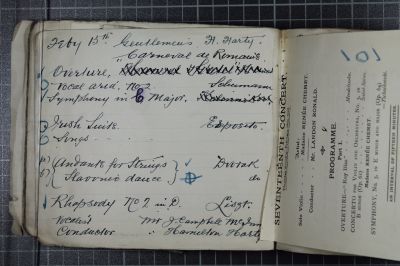 Feby 15th Gentlemen's H. Harty.
"Carneval de Romain"
Overture,
Vocal aria. No 2
Schumann
Symphony in C Major.
Irish Suite. Esposito.
Songs
(a) Andante for Strings Dvorak
(b) Slavonic dance do
Rhapsody No 2 in D. Liszt.
Vocalist Mr J. Campbell McInn
Conductor " Hamilton Harty
101
SEVENTEENTH CONCERT.
Artist
Madame RENÉE CHEMET.
Solo Violin
Conductor Mr. LANDON RONALD.
PROGRAMME.
Part I.
OVERTURE—Ruy Blas Mendelssohn.
CONCERTO FOR VIOLIN AND ORCHESTRA, No. 3, in
B minor (Op. 61) Saint-Saëns.
Madame RENÉE CHEMET.
SYMPHONY, No. 5, in E minor and major (Op. 64)
Tschaikowsky.
AN INTERVAL OF FIFTEEN MINUTES.